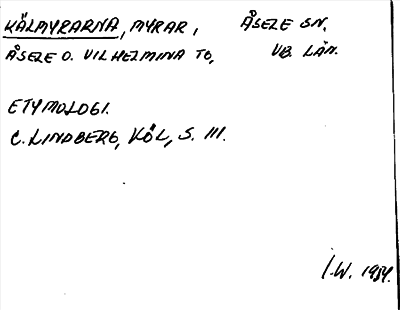 KÄLMYRARNA, MYRAR, ÅSELE SN,
ÅSELE O. VILHELMINA TG, VB. LÄN.
ETYMOLOGI.
C. LINDBERG, KÖL, S. 111.
I.W. 1984.